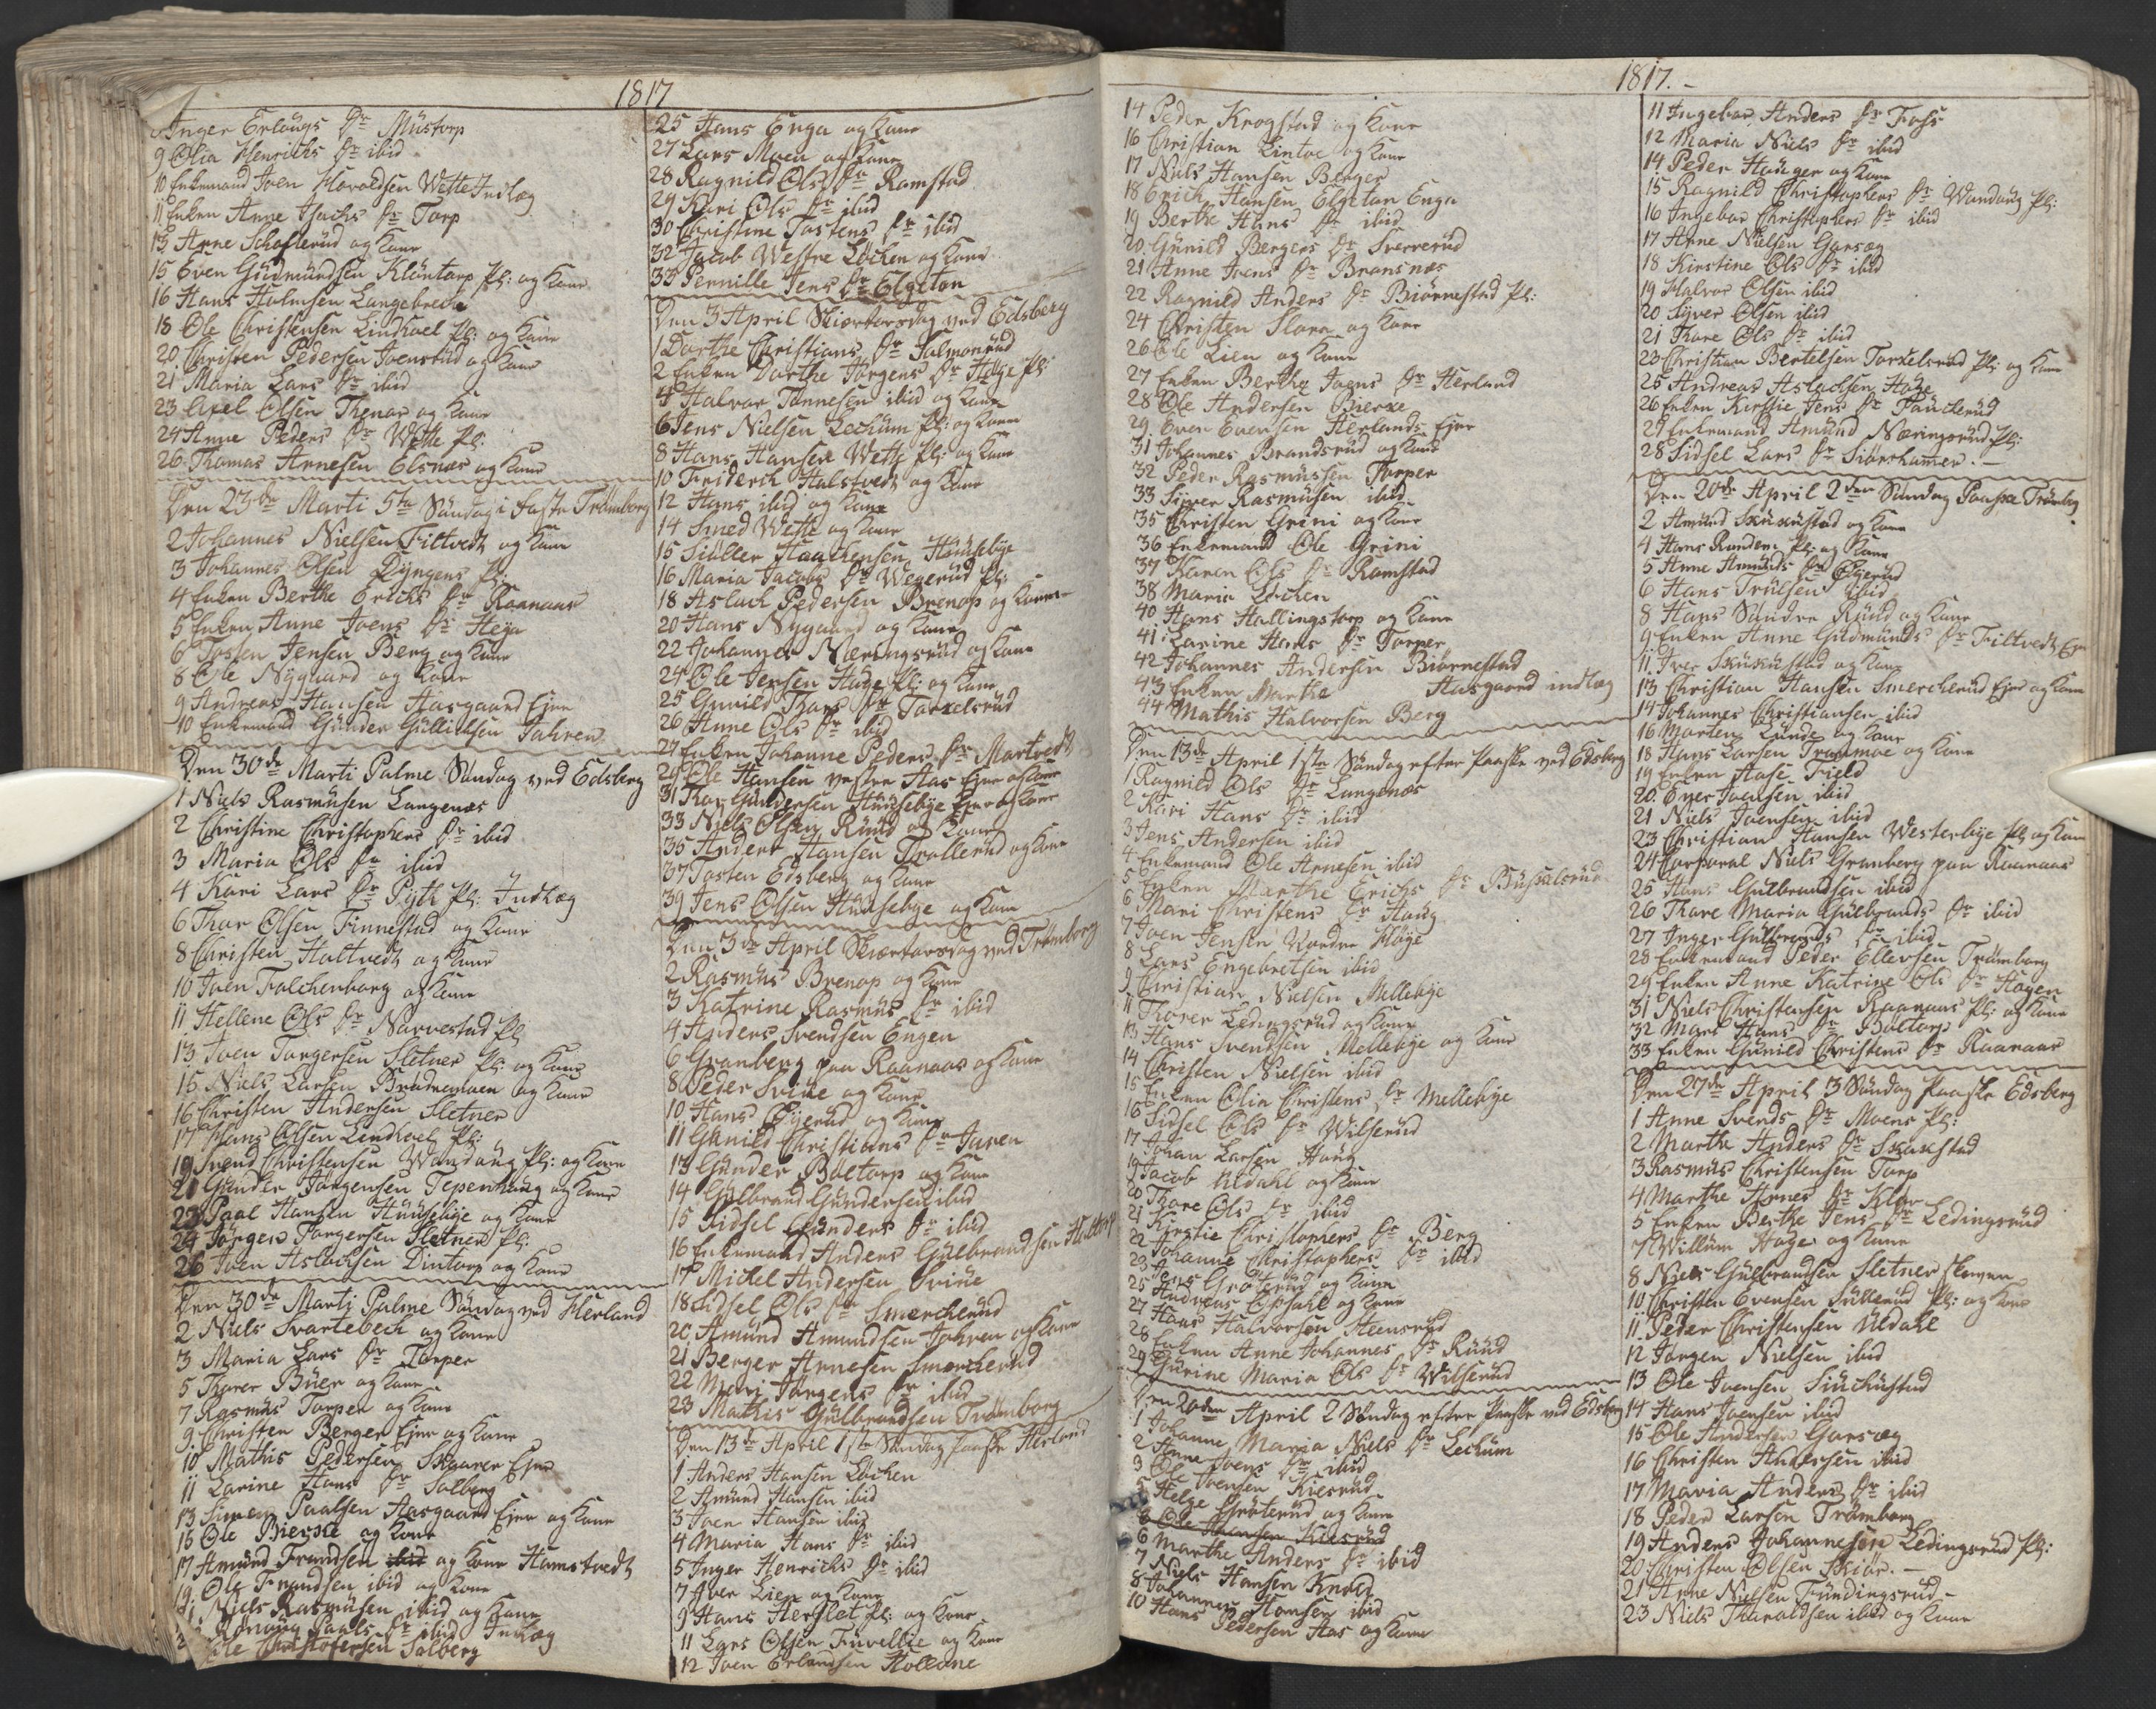 1817
Inger Erlougs Dr Mustorp
9 Olia Henrichs Dr ibid
10 Enkemand Joen Havoldsen Wette Indlæg
11 Enken Anne Isachs Dr Torp
13 Arne Schofterud og Kone
15 Even Gudmundsen Kløntorp Pl: og Kone
16 Hans Holmsen Langebreche
18 Ole Christensen Lindhoel Pl: og Kone
20 Christen Pedersen Joensrud og Kone
21 Maria Lars Dr ibid
23 Axel Olsen Thenor og Kone
24 Anne Peders Dr Wette Pl:
26 Thomas Arnesen Elsnes og Kone
Den 23de Marti 5te Søndag i Faste Trømborg
2 Johannes Nielsen Filtvedt og Kone
3 Johannes Olsen Dyngens Pl:
4 Enken Berthe Erichs Dr Raanaas
5 Enken Anne Joens Dr Heya
6 Tosten Jensen Berg og Kone
8 Ole Nygaard og Kone
9 Andreas Hansen Aasgaard Ejer
10 Enkemand Gunder Gullichsen Jahren
Den 30de Marti Palme Søndag ved Edsberg
1 Niels Rasmusen Langenæs
2 Christine Christophers Dr ibid
3 Maria Ols Dr ibid
4 Kari Lars Dr Pyth Pl: Indlæg
6 Thor Olsen Finnestad og Kone
8 Christen Haltvedt og Kone
10 Joen Falchenborg og Kone
11 Hellene Ols Dr Narvestad Pl
13 Joen Torgersen Sletner Pl: og Kone
15 Niels Larsen Brødremoen og Kone
16 Christen Andersen Sletner
17 Hans Olsen Lindhoel Pl:
19 Svend Christensen Wandaug Pl: og Kone
21 Gunder Jørgensen Tepenhaug og Kone
23 Paal Hansen Huusebye og Kone
24 Jørgen Torgersen Sletner Pl:
26 Joen Aslachsen Dintorp og Kone
Den 30de Marti Palme Søndag ved Herland
2 Niels Svartebech og Kone
3 Maria Lars Dr Torper
5 Thorer Buer og Kone
7 Rasmus Torper og Kone
9 Christen Berger Ejer og Kone
10 Mathis Pedersen Skaarer Ejer
11 Larine Hans Dr Solberg
13 Simen Paalsen Aasgaard Ejer og Kone
15 Ole Bierke og Kone
17 Amund Frandsen ibid og Kone Hamstvedt
19 Ole Frandsen ibid og Kone
21 Niels Rasmusen ibid og Kone
Rønnaug Paals Dr ibid Indlæg
Ole Christofersen Solberg
25 Hans Enga og Kone
27 Lars Moen og Kone
28 Ragnild Ols Dr Ramstad
29 Kari Ols Dr ibid
30 Christine Tostens Dr ibid
32 Jacob Westre Løchen og Kone
33 Pernille Jens Dr Elgeton
Den 3 April Skiertorsdag ved Edsberg
1 Dorthe Christians Dr Salmonrud
2 Enken Dorthe Jørgens Dr Høje Pl:
4 Halvor Tønnesen ibid og Kone
6 Jens Nielsen Lechum Pl: og Kone
8 Hans Hansen Wette Pl: og Kone
10 Friderich Halstvedt og Kone
12 Hans ibid og Kone
14 Smed Wette og Kone
15 Siøller Haachensen Huusebye
16 Maria Jacobs Dr Wegerud Pl:
18 Aslach Pedersen Brenop og Kone
20 Hans Nygaard og Kone
22 Johannes Næringsrud og Kone
24 Ole Jensen Hage Pl: og Kone
25 Gunild Thors Dr Torkelsrud
26 Anne Ols Dr ibid
27 Enken Johanne Peders Dr Martvedt
29 Ole Hansen vestre Aas Ejer og Kone
31 Thor Gundersen Huusebye Ejer og Kone
33 Niels Olsen Ruud og Kone
35 Anders Hansen Trollerud og Kone
37 Tosten Edsberg og Kone
39 Jens Olsen Huusebye og Kone
Den 3de April Skiærtorsdag ved Trømborg
2 Rasmus Brenop og Kone
3 Katrine Rasmus Dr ibid
4 Anders Svendsen Engen
6 Granberg paa Raanaas og Kone
8 Peder Svine og Kone
10 Hans Øyerud og Kone
11 Gunild Christians Dr Jaren
13 Gunder Boltorp og Kone
14 Gulbrand Gundersen ibid
15 Sidsel Gunders Dr ibid
16 Enkemand Anders Gulbrandsen Haltorp
17 Michel Andersen Svine
18 Sidsel Ols Dr Smercherud
20 Amund Amundsen Jahren og Kone
21 Berger Arnesen Smercherud
22 Mari Jørgens Dr ibid
23 Mathis Gulbrandsen Trømborg
Den 13de April 1ste Søndag Paaske Herland
1 Anders Hansen Løchen
2 Amund Hansen ibid
3 Joen Hansen ibid
4 Maria Hans Dr ibid
5 Inger Henrichs Dr ibid
7 Iver Lien og Kone
9 Hans Herslet Pl: og Kone
11 Lars Olsen Furellie og Kone
12 Joen Erlandsen Kollerne
1817.-
14 Peder Krogstad og Kone
16 Christian Lintoe og Kone
17 Niels Hansen Berger
18 Erich Hansen Elgeton Enga
19 Berthe Hans Dr ibid
20 Gunild Bergers Dr Sverrerud
21 Anne Joens Dr Bransnæs
22 Ragnild Anders Dr Biørnestad Pl:
24 Christen Slora og Kone
26 Ole Lien og Kone
27 Enken Berthe Joens Dr Herland
28 Ole Andersen Bierke
29 Even Evensen Herlands Ejer
31 Johannes Brandsrud og Kone
32 Peder Rasmussen Torper
33 Siver Rasmusen ibid
35 Christen Grini og Kone
36 Enkemand Ole Grini
37 Karen Ols Dr Ramstad
38 Maria Løchen
40 Hans Hallingstorp og Kone
41 Larine Hans Dr Torper
42 Johannes Andersen Biørnestad
43 Enken Marthe Aasgaard indlæg
44 Mathis Halvorsen Berg
Den 13de April 1ste Søndag efter Paaske ved Edsberg
1 Ragnild Ols Dr Langenæs
2 Kari Hans Dr ibid
3 Jens Andersen ibid
4 Enkemand Ole Arnesen ibid
5 Enken Marthe Erichs Dr Busselsrud
6 Mari Christens Dr Haug
7 Joen Jensen Nordre Høye
8 Lars Engebretsen ibid
9 Christian Nielsen Mellebye
11 Thorer Ledingsrud og Kone
13 Hans Svendsen Mellebye og Kone
14 Christen Nielsen ibid
15 Enken Olia Christens Dr Mellebye
16 Sidsel Ols Dr Wilserud
17 Johan Larsen Haug
19 Jacob Uldahl og Kone
20 Thore Ols Dr ibid
21 Kirstie Christophers Dr Berg
22 Johanne Christophers Dr ibid
23 Jens Grøterud og Kone
25 Andreas Opsahl og Kone
27 Hans Halvorsen Steensrud
28 Enken Anne Johannes Dr Ruud
29 Gurine Maria Ols Dr Wilserud
Den 20den April 2 Søndag efter Paaske ved Edsberg
1 Johanne Maria Niels Dr Lechum
2 Anne Joens Dr ibid
3 Ole Joensen Kiesrud
5 Helge Grøterud og Kone
6 Ole Joensen Kiesrud
6 Marthe Anders Dr ibid
7 Niels Hansen Knoll
8 Johannes Hansen ibid
10 Hans Pedersen Aas og Kone
11 Ingebor Anders Dr Foss
12 Maria Niels Dr ibid
14 Peder Hauger og Kone
15 Ragnild Christophers Dr Wandaug Pl:
16 Ingebor Christophers Dr ibid
17 Arne Nielsen Garseg
18 Kirstine Ols Dr ibid
19 Halvor Olsen ibid
20 Syver Olsen ibid
21 Thore Ols Dr ibid
23 Christian Bertelsen Torkelsrud Pl: og Kone
25 Andreas Aslachsen Hage
26 Enken Kirstie Jens Dr Paucherud
27 Enkemand Amund Næringsrud Pl:
28 Sidsel Lars Dr Siørshamer.-
Den 20de April 2den Søndag Paaske Trømborg
2 Amund Skuukustad og Kone
4 Hans Runden Pl: og Kone
5 Anne Amunds Dr Øyerud
6 Hans Trulsen ibid
8 Hans Søndre Ruud og Kone
9 Enken Anne Gudmunds Dr Filtvedt Ejer
11 Iver Skuukustad og Kone
13 Christian Hansen Smercherud Ejer og Kone
14 Johannes Christiansen ibid
16 Morten Lunde og Kone
18 Hans Larsen Tronmoe og Kone
19 Enken Aase Field
20 Ejer Joensen ibid
21 Niels Joensen ibid
23 Christian Hansen Westerbye Pl: og Kone
24 Corporal Niels Granberg paa Raanaas
25 Hans Gulbrandsen ibid
26 Thore Maria Gulbrands Dr ibid
27 Inger Gulbrands Dr ibid
28 Enkemand Peder Ellevsen Trømborg
29 Enken Anne Katrine Ols Dr Hagen
31 Niels Christensen Raanaas Pl: og Kone
32 Mari Hans Dr Boltorp
33 Enken Gunild Christens Dr Raanaas
Den 27de April 3 Søndag Paaske Edsberg
1 Anne Svends Dr Moens Pl:
2 Marthe Anders Dr Skakstad
3 Rasmus Christensen Torp
4 Marthe Arnes Dr Kløv
5 Enken Berthe Jens Dr Ledingsrud
7 Willum Hage og Kone
8 Niels Gulbrandsen Sletner Skoven
10 Christen Evensen Sullerud Pl: og Kone
11 Peder Christensen Uldahl
12 Jørgen Nielsen ibid
13 Ole Joensen Siuchustad
14 Hans Joensen ibid
15 Ole Andersen Garseg
16 Christen Andersen ibid
17 Maria Anders Dr ibid
18 Peder Larsen Trømborg
19 Anders Johannesen Ledingsrud Pl:
20 Christen Olsen Skiør.-
21 Arne Nielsen Fundingsrud-
23 Niels Tharaldsen ibid og Kone